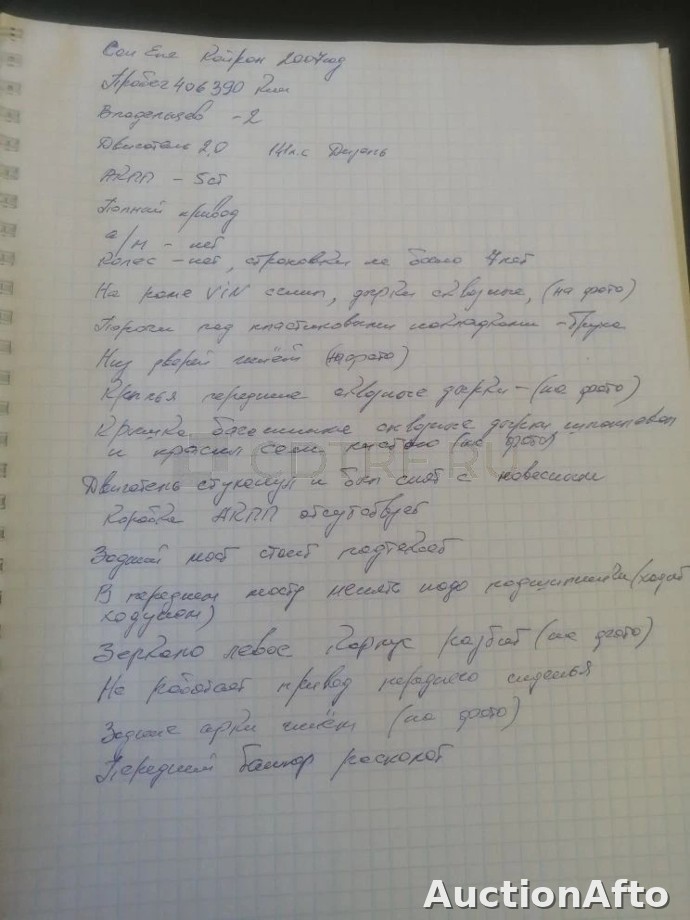 Сан Енг Кайрон 2007год
Пробег 406390 км
Владельцев - 2
Двигатель 2,0 141л.с Дизель
АКПП - 5ст
Полный привод
а/м - нет
Колес - нет, страховки не было 7лет
На раме VIN гнил, дырки сквозные, (на фото)
Пороги под пластиковыми накладками - труха
Низ дверей гниёт (на фото)
Крылья передние сквозные дырки - (на фото)
Крышка багажника сквозные дырки
и красил сам кистью (на фото)
Двигатель стуканул и был снят с навесным
Коробка АКПП отсутствует
Задний мост стоит подтекает
В переднем мосту менять надо подшипники (ходят
ходуном)
Зеркало левое Корпус разбит (на фото)
Не работает привод переднего сиденья
Задние арки гниют (на фото)
Передний бампер расколот
CDTRF.RU
AuctionAfto